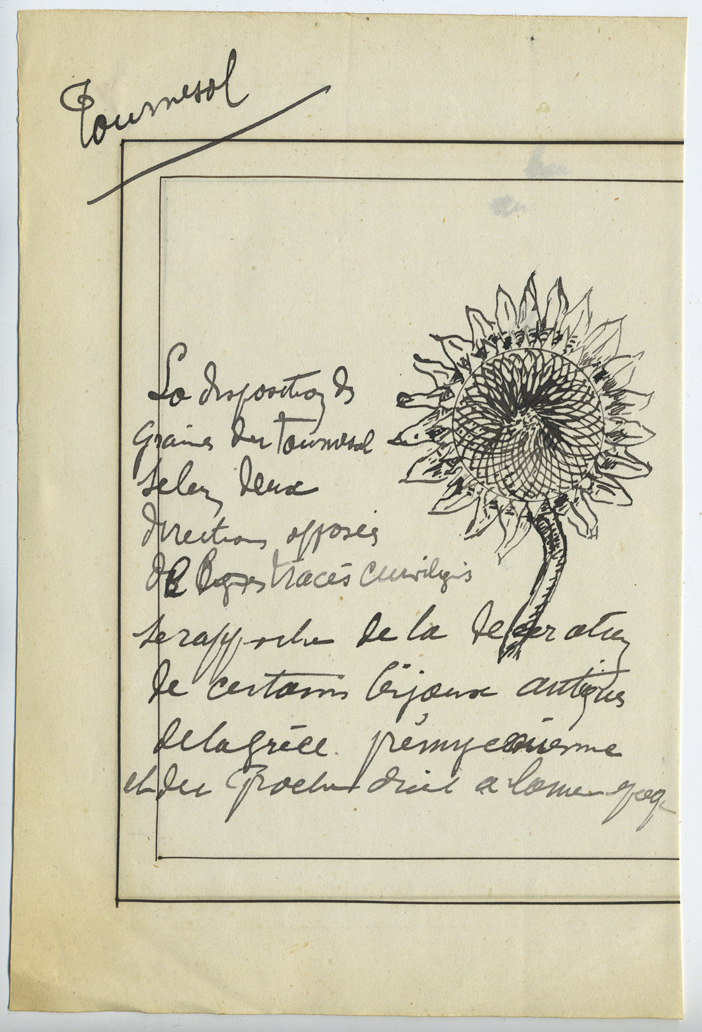 Tournesol
La disposition des
graines du tournesol
selon deux
directions opposées
de lignes tracés curvilignes
se rapproche de la décoration
de certains bijoux antiques
de la grèce prémycénienne
et du Proche orient a la même époq